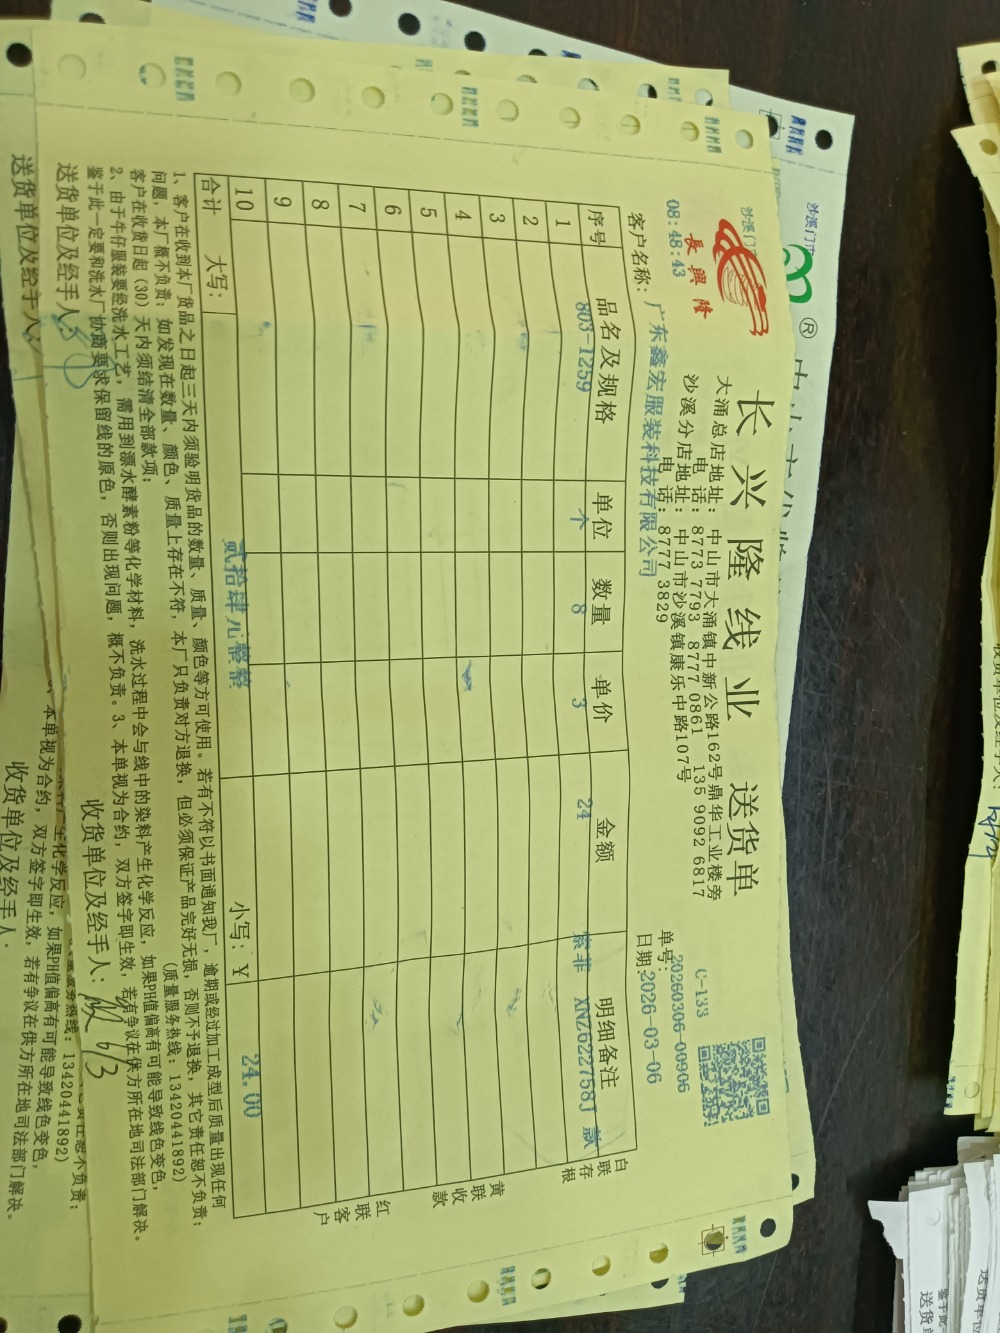 長興隆
长兴隆线业 送货单
大涌总店地址：中山市大涌镇中新公路162号鼎华工业楼旁
电 话：8773 7793 8777 0861 135 9092 6817
沙溪分店地址：中山市沙溪镇康乐中路107号
电 话：8777 3829
C-133
单号：20260306-00906
日期：2026-03-06
08:48:43
客户名称：广东鑫宏服装科技有限公司
序号 品名及规格 单位 数量 单价 金额 明细备注
1 803-1259 个 8 3 24 XNZ622758J 款
2
3
4
5
6
7
8
9
10
合计 大写：贰拾肆元整 小写：¥ 24.00
白联存根
黄联收款
红联客户
1、客户在收到本厂货品之日起三天内须验明货品的数量、质量、颜色等方可使用。若有不符以书面通知我厂，逾期或经过加工成型后质量出现任何
问题，本厂概不负责；如发现在数量、颜色、质量上存在不符，本厂只负责对方退换，但必须保证产品完好无损，否则不予退换，其它责任恕不负责；
客户在收货日起（30）天内须结清全部款项； （质量服务热线：13420441892）
2、由于牛仔服装要经洗水工艺，需用到漂水酵素粉等化学材料，洗水过程中会与线中的染料产生化学反应，如果PH值偏高有可能导致线色变色，
鉴于此一定要和洗水厂协商要求保留线的原色，否则出现问题，概不负责。3、本单视为合约，双方签字即生效，若有争议在供方所在地司法部门解决。
送货单位及经手人： 收货单位及经手人： 6/3
沙溪门市
®
送货单位及经手人： 收货单位及经手人：